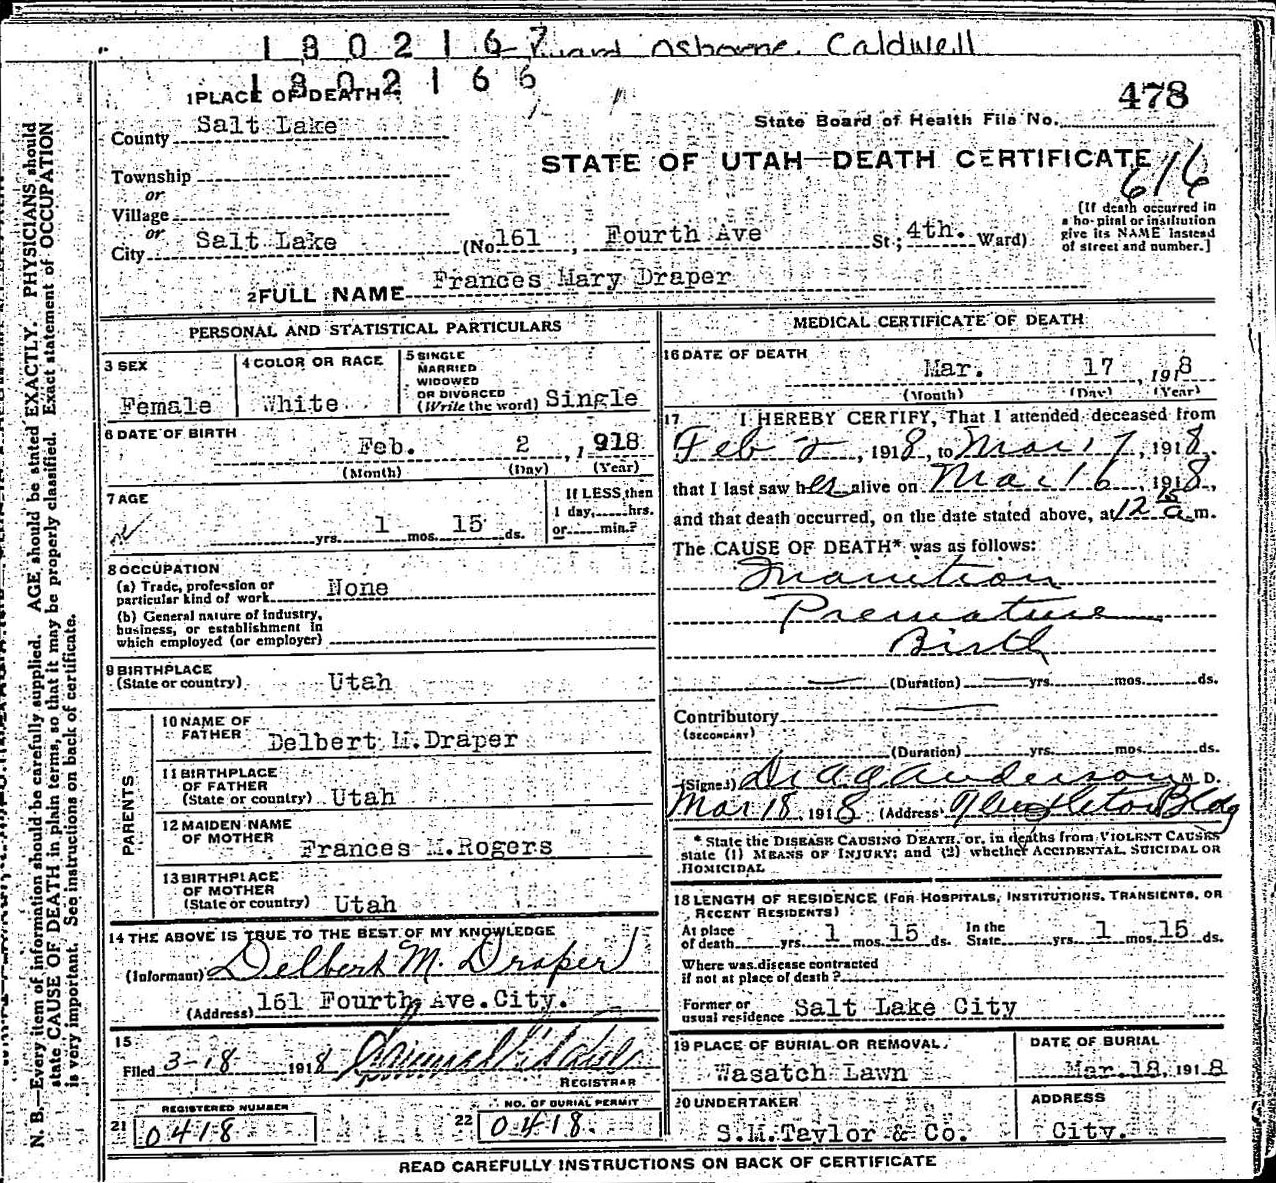 1802167 Osborne Caldwell
1802166
478
1 PLACE OF DEATH
State Board of Health File No.
County Salt Lake
STATE OF UTAH—DEATH CERTIFICATE
616
Township
or
Village
or
City Salt Lake (No. 161, Fourth Ave St.; 4th. Ward)
[If death occurred in
a hospital or institution
give its NAME instead
of street and number.]
2 FULL NAME Frances Mary Draper
PERSONAL AND STATISTICAL PARTICULARS
3 SEX
Female
4 COLOR OR RACE
White
5 SINGLE
MARRIED
WIDOWED
OR DIVORCED
(Write the word) Single
6 DATE OF BIRTH
Feb. 2, 1918
(Month) (Day) (Year)
7 AGE
yrs. 1 mos. 15 ds.
If LESS then
1 day, hrs.
or min.?
8 OCCUPATION
(a) Trade, profession or
particular kind of work None
(b) General nature of industry,
business, or establishment in
which employed (or employer)
9 BIRTHPLACE
(State or country) Utah
PARENTS
10 NAME OF
FATHER Delbert M. Draper
11 BIRTHPLACE
OF FATHER
(State or country) Utah
12 MAIDEN NAME
OF MOTHER Frances M. Rogers
13 BIRTHPLACE
OF MOTHER
(State or country) Utah
14 THE ABOVE IS TRUE TO THE BEST OF MY KNOWLEDGE
(Informant) Delbert M. Draper
(Address) 161 Fourth Ave. City.
15
Filed 3-18 1918
REGISTRAR
REGISTERED NUMBER
21 0418
NO. OF BURIAL PERMIT
22 0418.
MEDICAL CERTIFICATE OF DEATH
16 DATE OF DEATH
Mar. 17, 1918
(Month) (Day) (Year)
17 I HEREBY CERTIFY, That I attended deceased from
Feb 2, 1918, to Mar 17, 1918.
that I last saw her alive on Mar 16, 1918,
and that death occurred, on the date stated above, at 12 15 a.m.
The CAUSE OF DEATH* was as follows:
Inanition
Premature
Birth
(Duration) yrs. mos. ds.
Contributory
(SECONDARY)
(Duration) yrs. mos. ds.
(Signed) Dr A G Anderson M D.
Mar 18 1918 (Address) Templeton Bldg
* State the DISEASE CAUSING DEATH, or, in deaths from VIOLENT CAUSES
state (1) MEANS OF INJURY; and (2) whether ACCIDENTAL, SUICIDAL OR
HOMICIDAL
18 LENGTH OF RESIDENCE (FOR HOSPITALS, INSTITUTIONS, TRANSIENTS, OR
RECENT RESIDENTS)
At place of death yrs. 1 mos. 15 ds. In the State yrs. 1 mos. 15 ds.
Where was disease contracted
if not at place of death?
Former or
usual residence Salt Lake City
19 PLACE OF BURIAL OR REMOVAL.
Wasatch Lawn
DATE OF BURIAL
Mar. 18, 1918
20 UNDERTAKER
S.M. Taylor & Co.
ADDRESS
City.
READ CAREFULLY INSTRUCTIONS ON BACK OF CERTIFICATE
N. B.—Every item of information should be carefully supplied. AGE should be stated EXACTLY. PHYSICIANS should
state CAUSE OF DEATH in plain terms, so that it may be properly classified. Exact statement of OCCUPATION
is very important. See instructions on back of certificate.